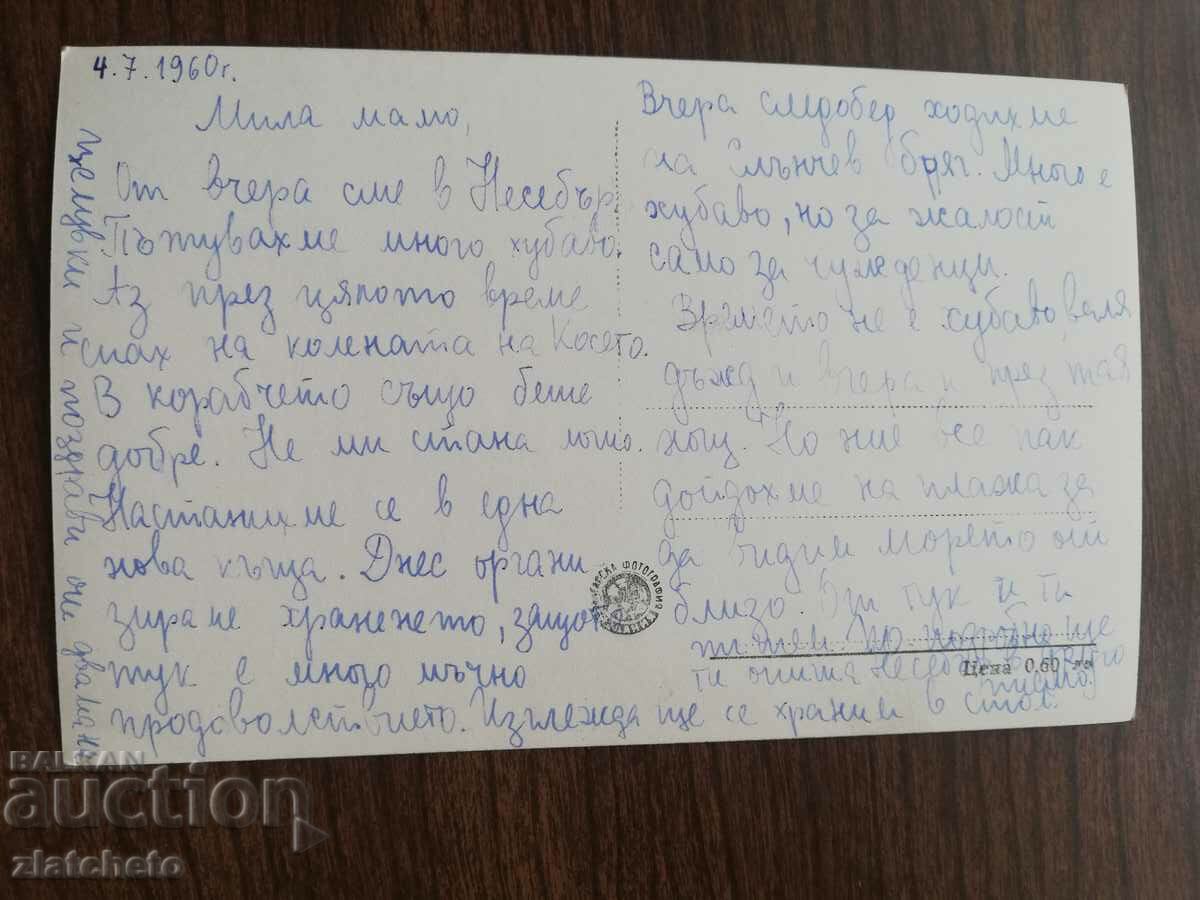 4.7.1960г.
Мила мамо,
От вчера сме в Несебър.
Пътувахме много хубаво.
Аз през цялото време
спах на колената на Косето.
В корабчето също беше
добре. Не ми стана лошо.
Настанихме се в една
нова къща. Днес органи
зираме храненето, защото
тук е много мъчно
продоволствието. Изглежда ще се храним в стол.
Вчера следобед ходихме
на Слънчев бряг. Много е
хубаво, но за жалост
само за чужденци.
Времето не е хубаво, валя
дъжд и вчера и през тая
нощ. Но ние все пак
дойдохме на плажа за
да видим морето от
близо. От тук и ти
пишем. По подробно ще
ти опиша Несебър в друго
писмо.
целувки и поздрави от двама ни
БЪЛГАРСКА ФОТОГРАФИЯ
Цена 0,60 лв
BALKAN
auction
zlatcheto